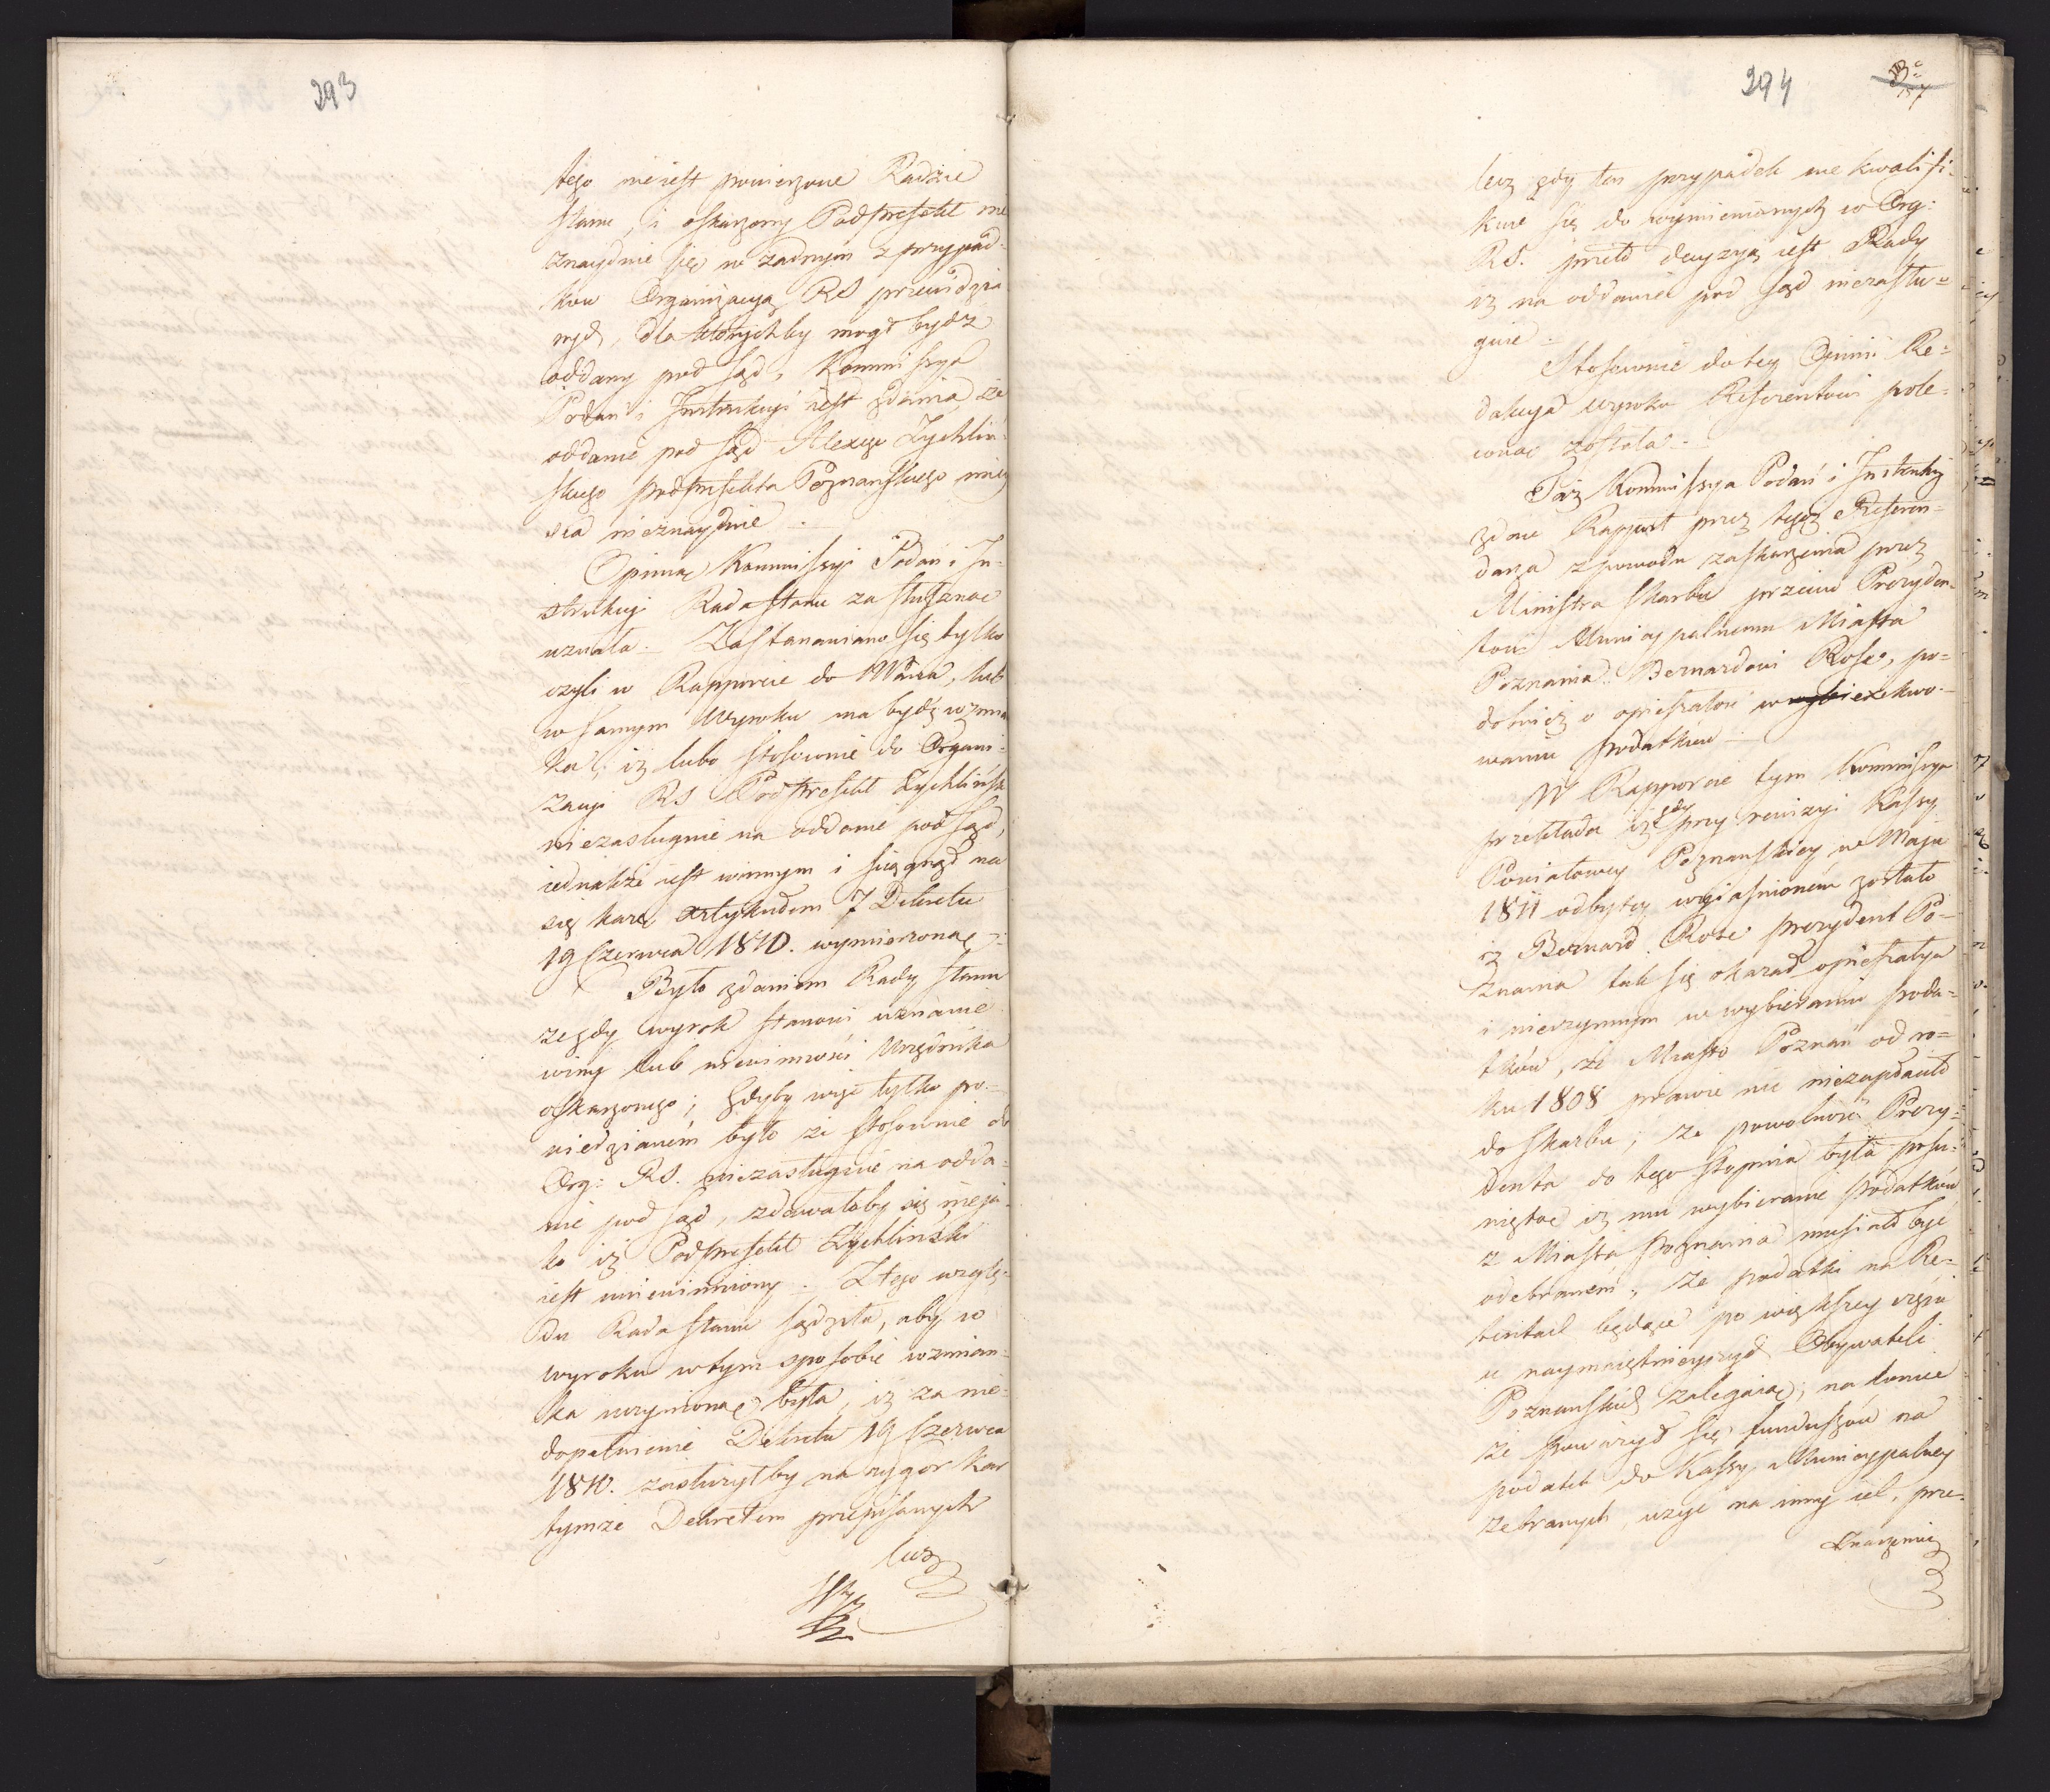 293
tego nie iest powierzone Radzie
Stanu, i oskarzony Podprefekt nie
znayduie się w żadnym z przypad-
kow Organizacyą RS przewidzia
nych, dla ktorychby mogł bydź
oddany pod Sąd, Kommissya
Podan i Instrukcyi iest zdania, że
oddanie pod Sąd Alexego Zychlin-
skiego Podprefekta Poznanskiego miey
sca nieznayduie .
Opinią Kommissyi Podań i In-
strukcyi Rada Stanu za słuszną
uznała. Zastanawiano się tylko
czyli w Rapporcie do Króla, lub
w samym Wyroku ma bydź wzmian
ka, iż lubo stosownie do Organi-
zacyi RS Podprefekt Zychliński
niezasługuie na oddanie pod Sąd,
iednakże iest winnym i ściągnął na
się karę artykułem 7 Dekretu
19 Czerwca 1810. wymierzoną.
Było zdaniem Rady Stanu
że gdy wyrok stanowi uznanie
winy lub niewinności Urzędnika
oskarżonego; gdyby więc tylko po-
wiedzianém było że stosownie do
Org: RS. niezasługuie na odda-
nie pod Sąd, zdawałoby się nieja-
ko iż Podprefekt Zychliński
iest uniewinniony. Z tego wzglę-
du Rada Stanu sądziła, aby w
wyroku w tym sposobie wzmian-
ka uczynioną była, iż za nie-
dopełnienie Dekretu 19 Czerwca
1810. zasłużyłby na rygor kar
tymże Dekretem przepisanych
lecz
294
157
lecz gdy ten przypadek nie kwalifi-
kuie się do wymienionych w Org:
RS. przeto decyzyą iest Rady
iż na oddanie pod Sąd niezasłu-
guie.
Stosownie do tey Opinii Re-
dakcya wyroku Referentowi pole-
coną została.
Taż Kommissya Podań i Instrukcyi
zdaie Rapport przez tegoż Referen-
darza z powodu zaskarzenia przez
Ministra Skarbu przeciw Prezyden-
towi Municypalnemu Miasta
Poznania Bernardowi Rose, po-
dobnież o opieszałość w exekwo-
waniu podatków.
W Rapporcie tym Kommissya
przekłada iż gdy przy rewizyi Kassy
Powiatowey Poznanskiey w Maju
1811 odbytey wyiaśnioném zostało
iż Bernard Rose Prezydent Po-
znania tak się okazał opieszałym
i nieczynnym w wybieraniu poda-
tków, że Miasto Poznań od ro-
ku 1808 prawie nic niezapłaciło
do Skarbu; że powolność Prezy-
denta do tego stopnia była posu-
niętą iż mu wybieranie podatków
z Miasta Poznania musiało być
odebraném; że podatki na Re-
tentach będące po większey części
u naymaiętnieyszych Obywateli
Poznanskich zalegaią; na koniec
że poważył się funduszów na
podatek do Kassy Municypalney
zebranych, użyć na inny cel, prze-
znaczenie